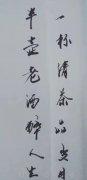 一杯清茶品岁月
半壶老酒醉人生